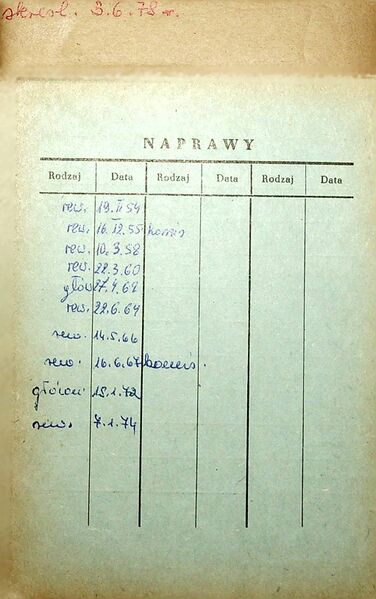 skreśl. 3.6.78 r.
NAPRAWY
Rodzaj Data Rodzaj Data Rodzaj Data
rew. 19.II 54
rew. 16.XII.55 komis
rew. 10.3.58
rew. 22.3.60
głów 27.4.62
rew. 22.6.64
rew. 14.5.66
rew. 16.6.67 komis.
główn. 15.1.72
rew. 7.1.74